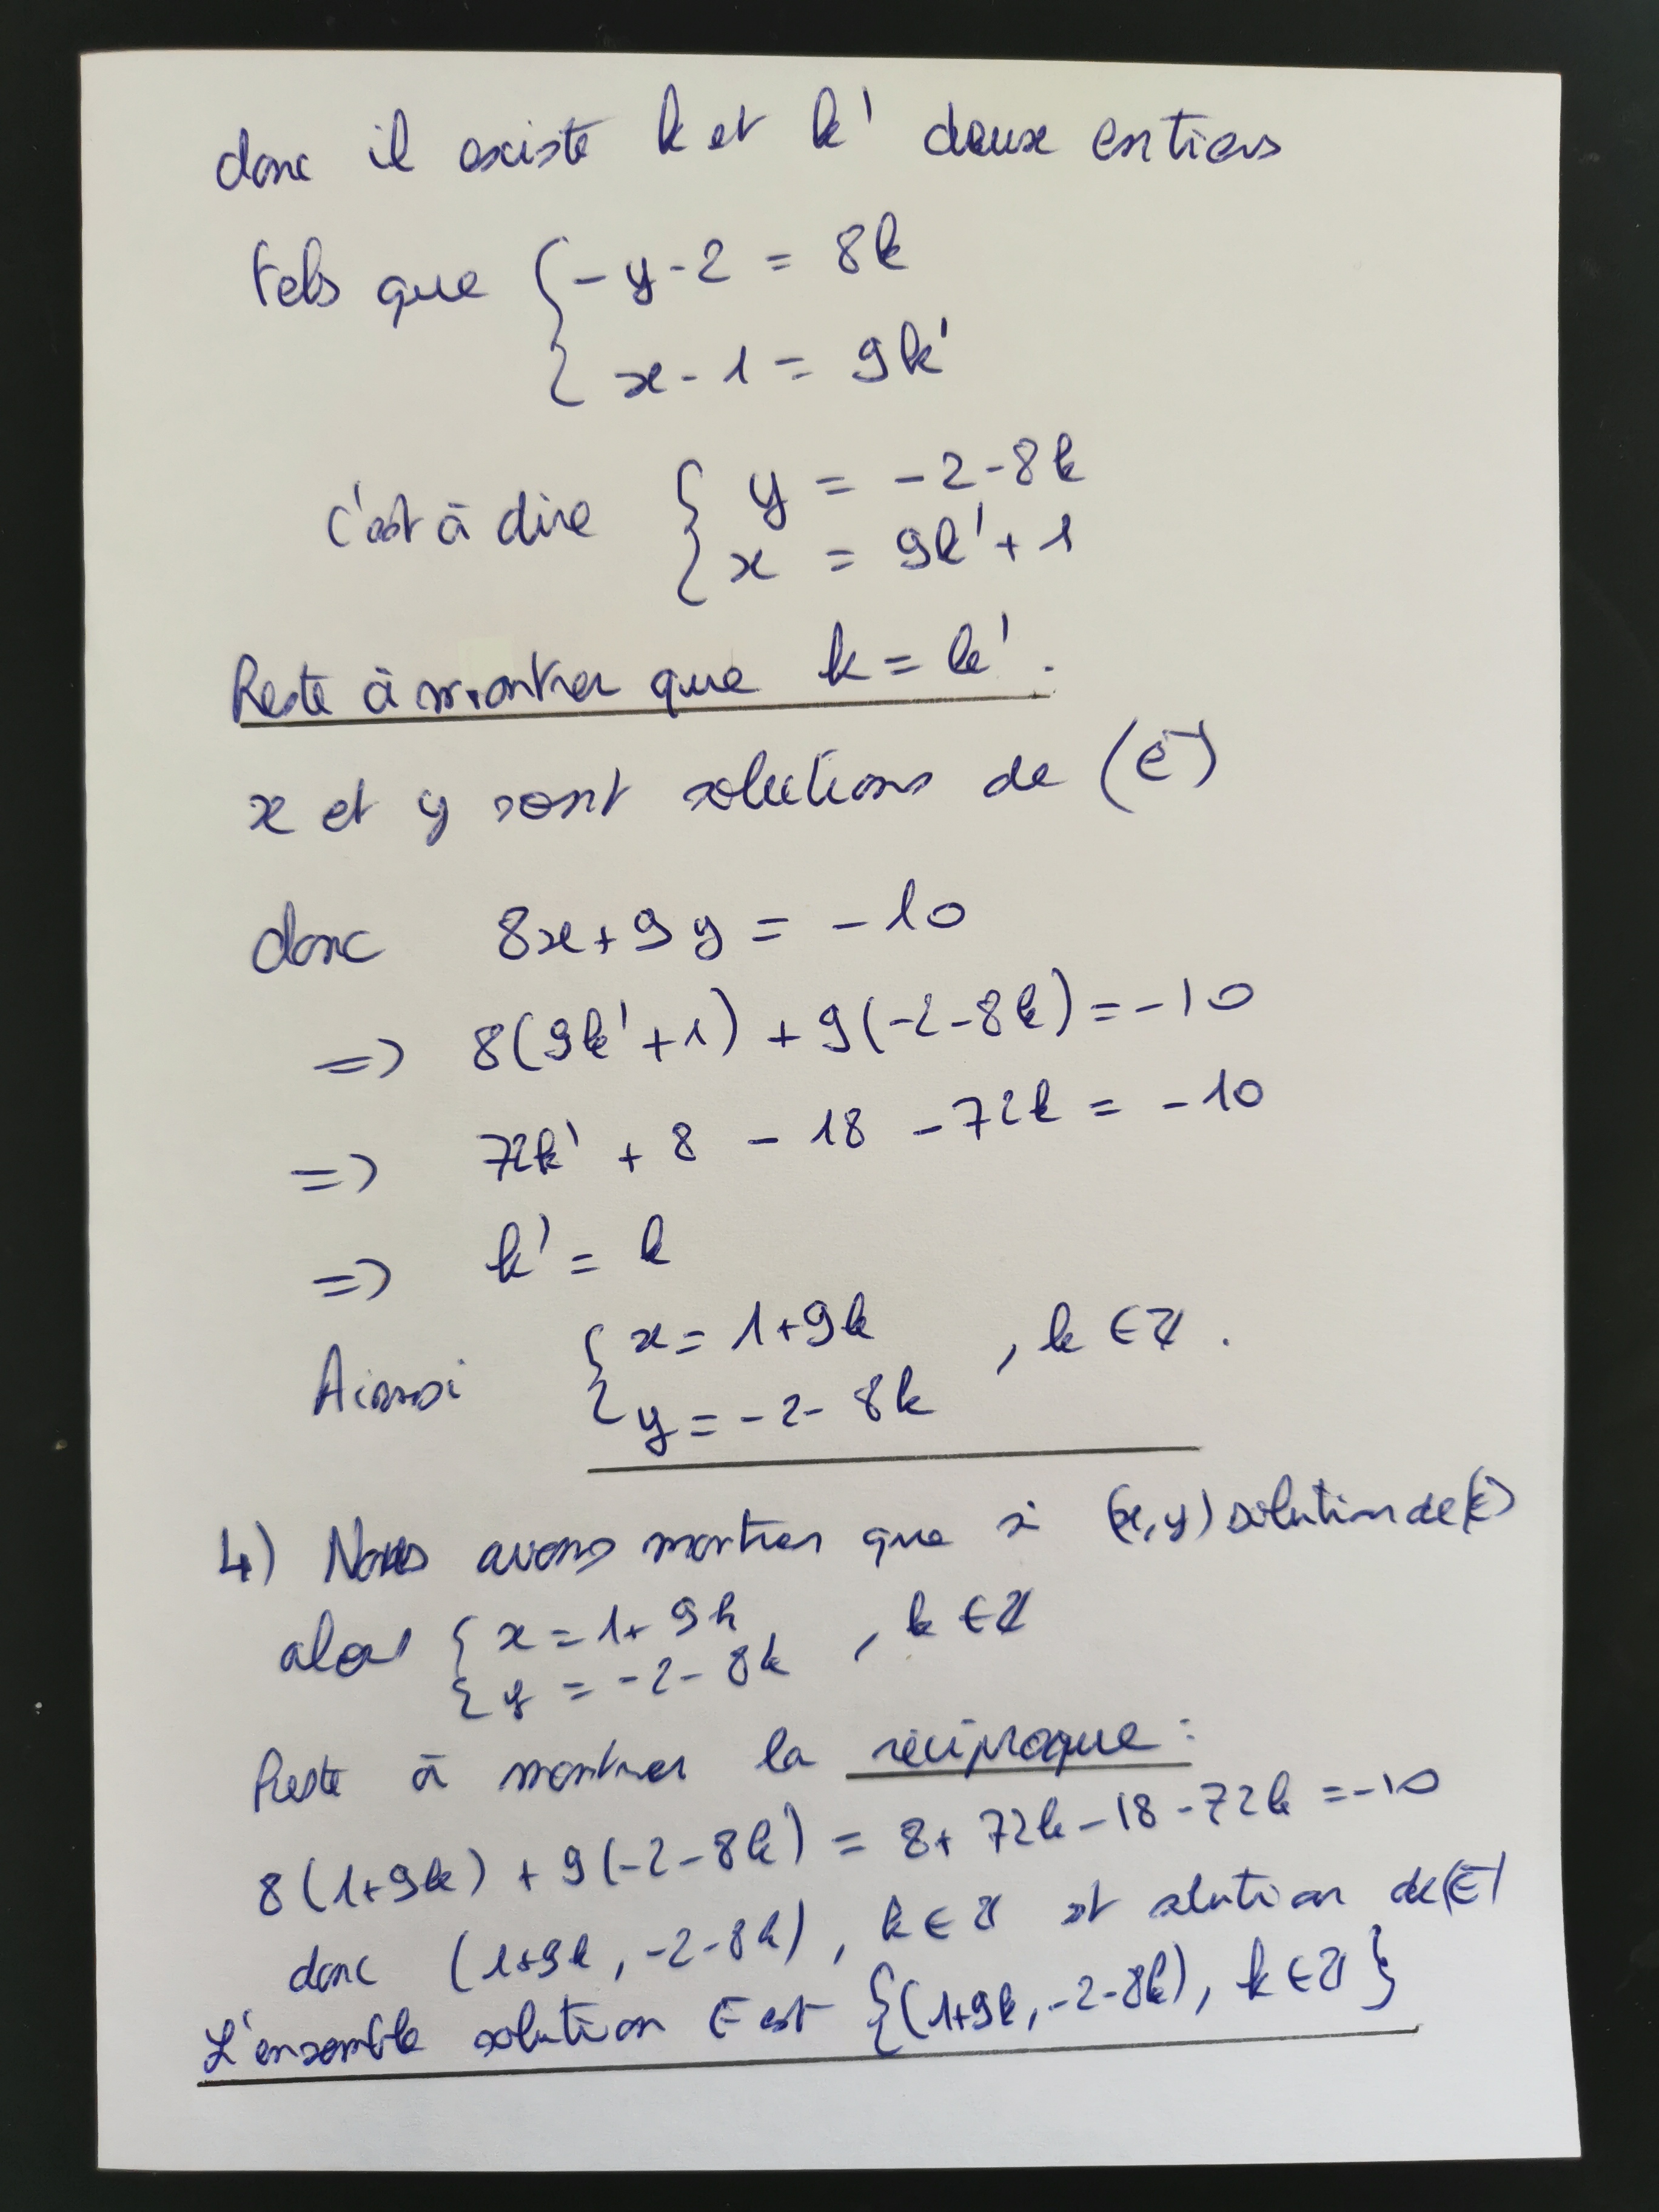 donc il existe k et k' deux entiers
tels que { -y-2 = 8k
x-1 = 9k'
c'est à dire { y = -2-8k
x = 9k'+1
Reste à montrer que k = k'.
x et y sont solutions de (E)
donc 8x+9y = -10
=> 8(9k'+1) + 9(-2-8k) = -10
=> 72k' + 8 - 18 - 72k = -10
=> k' = k
Ainsi { x = 1+9k , k ∈ ℤ.
y = -2-8k
4) Nous avons montrer que si (x,y) solution de (E)
alors { x = 1+9k , k ∈ ℤ
y = -2-8k
Reste à montrer la réciproque :
8(1+9k) + 9(-2-8k) = 8+72k-18-72k = -10
donc (1+9k, -2-8k), k ∈ ℤ est solution de (E)
L'ensemble solution E est {(1+9k, -2-8k), k ∈ ℤ}